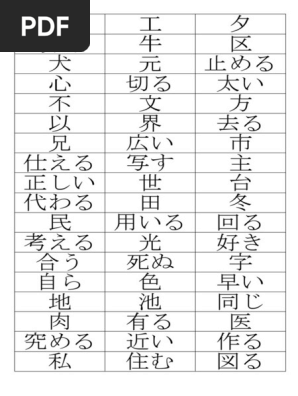 PDF
工 夕
牛 区
犬 元 止める
心 切る 太い
不 文 方
以 界 去る
兄 広い 市
仕える 写す 主
正しい 世 台
代わる 田 冬
民 用いる 回る
考える 光 好き
合う 死ぬ 字
自ら 色 早い
地 池 同じ
肉 有る 医
究める 近い 作る
私 住む 図る